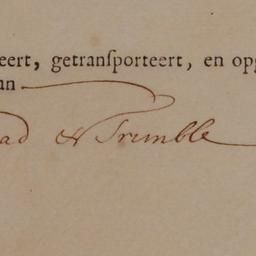 eert, getranſporteert, en opg
an
ad & Trumble